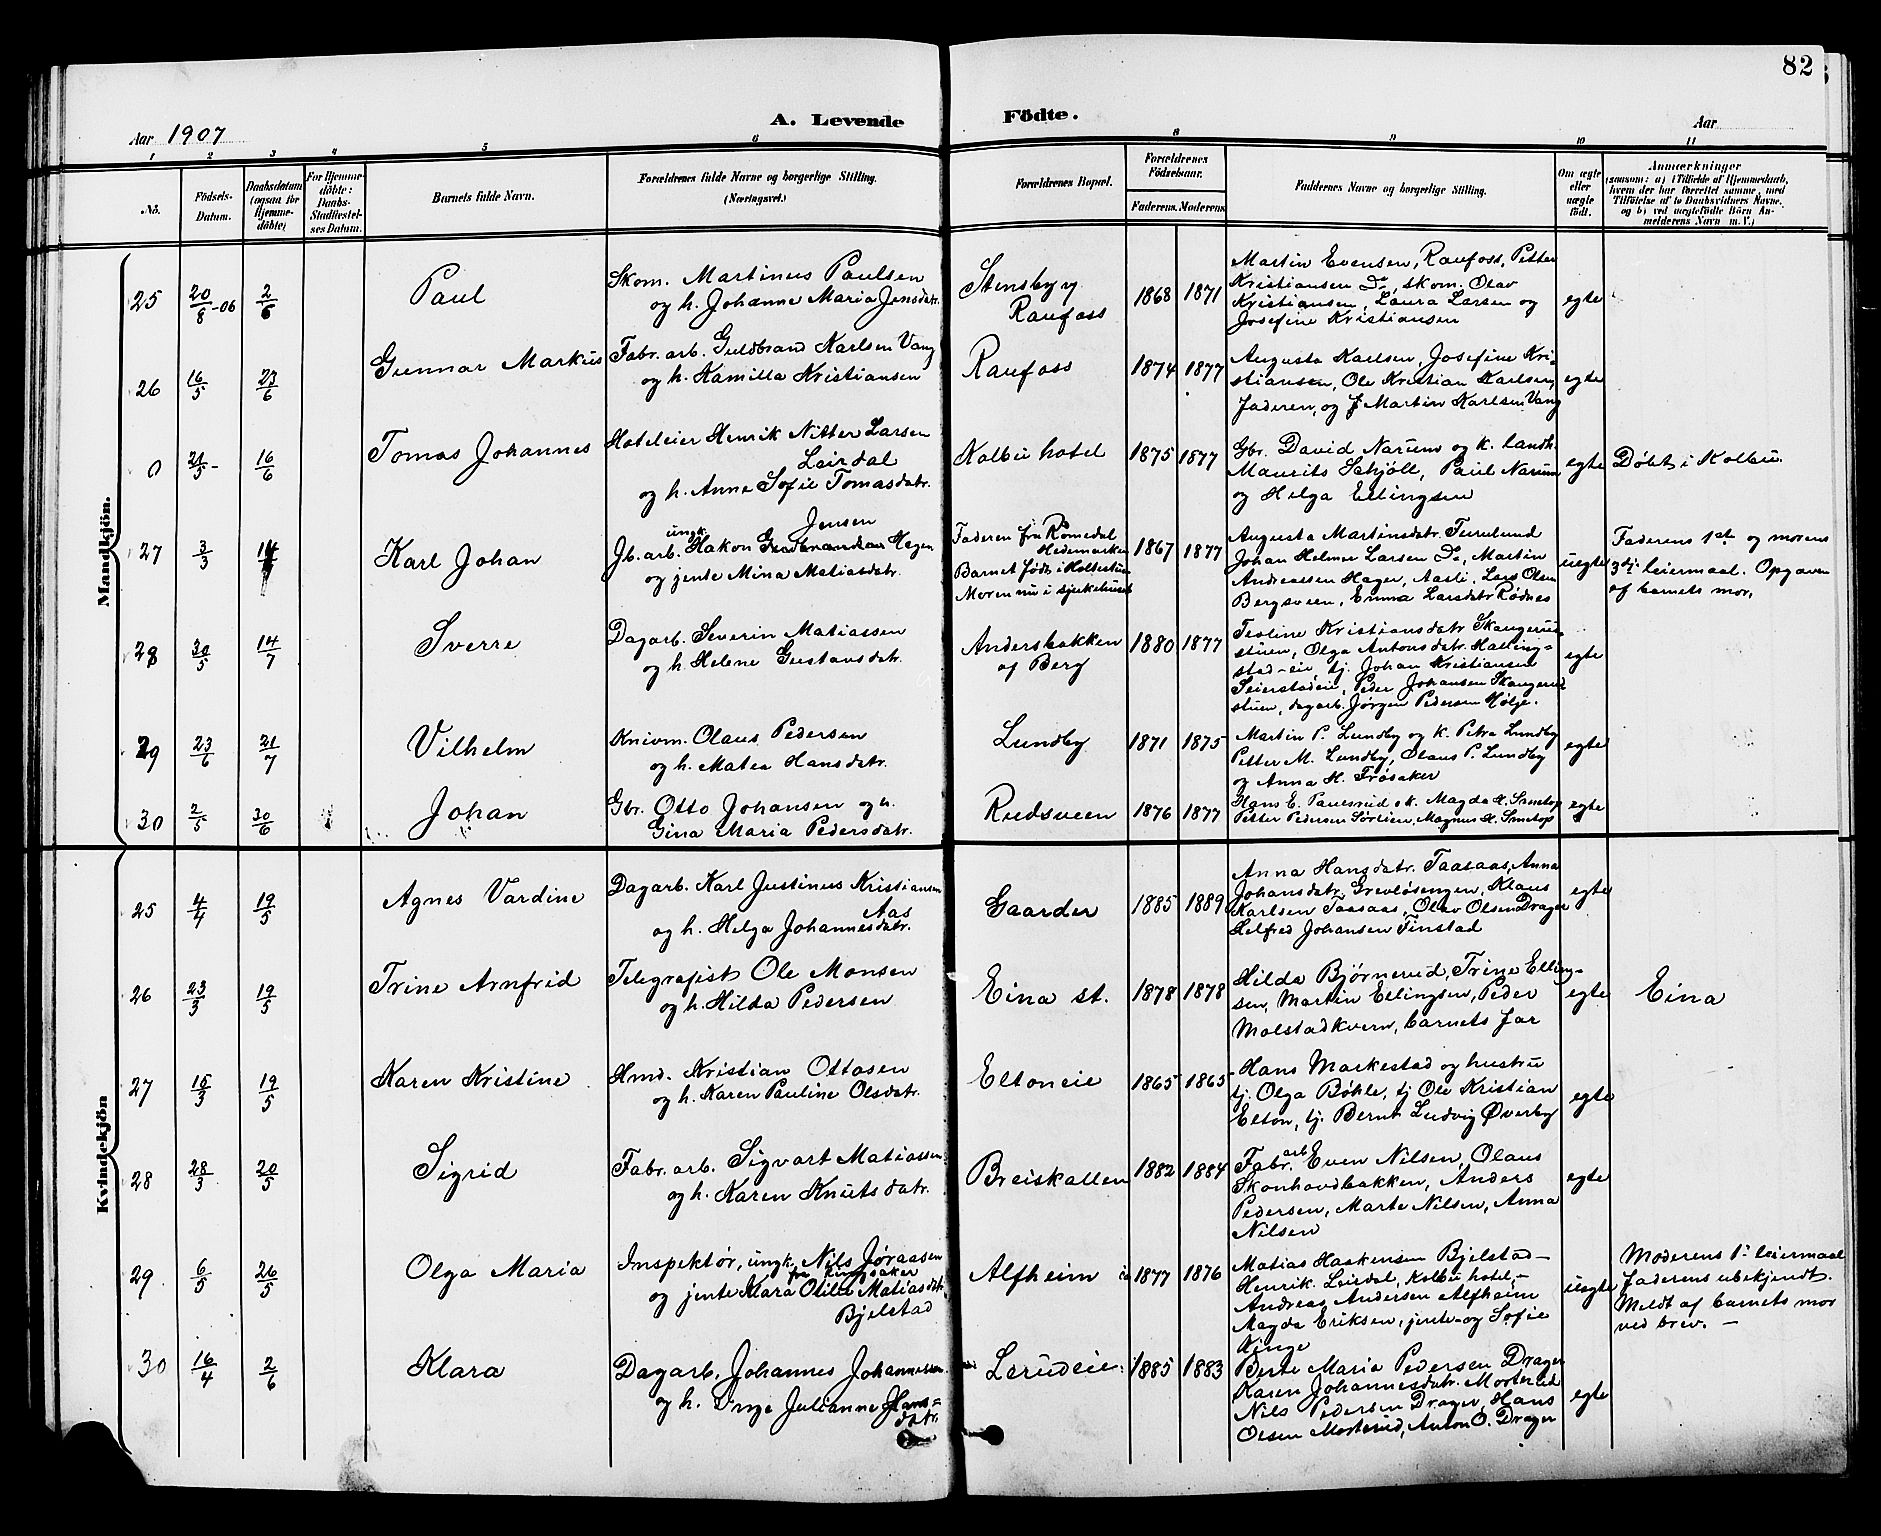 82
A. Levende Födte.
Aar 1907
Aar
1 2 3 4 5 6 8 9 10 11
No.
Födsels-
Datum.
Daabsdatum
(ogsaa for
Hjemme-
döbte)
For Hjemme-
döbte:
Daabs-
Stadfæstel-
ses Datum.
Barnets fulde Navn.
Forældrenes fulde Navne og borgerlige Stilling.
(Næringsvei.)
Forældrenes Bopæl.
Forældrenes
Födselsaar.
Faderens. Moderens.
Faddernes Navne og borgerlige Stilling.
Om ægte
eller
uægte
födt.
Anmærkninger
(saasom: a) i Tilfælde af Hjemmedaab,
hvem der har forrettet samme, med
Tilföielse af to Daabsvidners Navne,
og b) ved uægtefödte Börn An-
melderens Navn m. V.)
Mandkjön.
25 20/8-06 2/6 Paul
Skom. Martinus Paulsen
og h. Johanne Maria Jensdatr.
Stensby
Raufoss
1868 1871
Martin Evensen, Raufoss, Petter
Kristiansen Do, skom. Olav
Kristiansen, Laura Larsen og
Josefine Kristiansen
egte
26 16/5 23/6 Gunnar Markus
Fabr. arb. Guldbrand Karlsen Vang
og h. Kamilla Kristiansen
Raufoss
1874 1877
Augusta Karlsen, Josefine Kri-
stiansen, Ole Kristian Karlsen,
Faderen, og Martin Karlsen Vang
egte
0 21/5- 16/6 Tomas Johannes
Hoteleier Henrik Nitter Larsen
Leirdal
og h. Anne Sofie Tomasdatr.
Kolbu hotel
1875 1877
Gbr. David Narum og k. landh.
Maurits Schjöll, Paul Narum
og Helga Ellingsen
egte
Döbt i Kolbu.
27 3/3 14 Karl Johan
Jensen
ungk.
Jb. arb. Hakon Hagen
og jente Mina Matiasdatr.
Faderen fra Romedal
Hedemarken
Barnet født i
Moren nu i sjukehuset
1867 1877
Augusta Martinsdatr. Terrelund
Johan Helmer Larsen Do, Martin
Andreassen Hager, Aasli, Lars Olsen
Bergsveen, Emma Larsdatr Rødnes
uegte
Faderens 1ste og morens
3die leiermaal. Opgaven
af barnets mor.
28 30/5 14/7 Sverre
Dagarb. Severin Matiassen
og h. Helene Gustavsdatr.
Andersbakken
af Berg
1880 1877
Teoline Kristiansdatr Skangerud-
stuen, Olga Antonsdatr. Halling-
stad-eie, tj. Johan Kristiansen
Seierstadeie, Peder Johansen Skangerud
stuen, dagarb. Jørgen Pedersen Hølje.
egte
29 23/6 21/7 Vilhelm
Knivm. Olaus Pedersen
og h. Matea Hansdatr.
Lundby
1871 1875
Martin P. Lundby og k. Petra Lundby
Petter M. Lundby, Olaus P. Lundby
og Anna H. Frøsaker
egte
30 2/5 30/6 Johan
Gbr. Otto Johansen og h.
Gina Maria Pedersdatr.
Rudsveen
1876 1877
Hans E. Paulsrud o k. Magda H. Smetop
Petter Pedersen Sørlien, Magnus H. Smetop
egte
Kvindekjön
25 4/4 19/5 Agnes Vardine
Dagarb. Karl Justinus Kristiansen
Aas
og h. Helga Johannesdatr.
Gaarder
1885 1889
Anna Hansdatr. Taasaas, Anna
Johansdatr. Grevløsengen, Klaus
Karlsen Taasaas, Olav Olsen Drager
Helfred Johansen Finstad
egte
26 23/3 19/5 Trine Arnfrid
Telegrafist Ole Monsen
og h. Hilda Pedersen
Eina st.
1878 1878
Hilda Bjørnerud, Trine Elling-
sen, Martin Ellingsen, Peder
Molstadkvern, barnets far
egte
Eina
27 15/3 19/5 Karen Kristine
Hmd. Kristian Ottosen
og h. Karen Pauline Olsdatr.
Eltoneie
1865 1865
Hans Markestad og hustru
tj. Olga Bøhle, tj Ole Kristian
Elton, tj. Bernt Ludvig Øverby
egte
28 28/3 20/5 Sigrid
Fabr. arb. Sigvart Matiassen
og h. Karen Knutsdatr.
Breiskallen
1882 1884
Fabr. arb Even Nilsen, Olaus
Skonhovdbakken, Anders
Pedersen, Marte Nilsen, Anna
Nilsen
egte
29 6/5 26/5 Olga Maria
Inspektør, ungk. Nils Jøraasen
fra Ringsaker
og jente Klara Otilie Matiasdatr.
Bjelstad
Alfheim
1877 1876
Matias Haakensen Bjelstad-
Henrik Leirdal, Kolbu hotel,-
Andreas Andersen Alfheim
Magda Eriksen, jente-og Sofie
Ringe
uegte
Moderens 1ste leiermaal
Faderens ubekjendt.
Meldt af barnets mor
ved brev. -
30 16/4 2/6 Klara
Dagarb. Johannes Johannessen
og h. Inge Julianne Hans-
datr.
Lerudeie
1885 1883
Berte Maria Pedersen Drager
Karen Johannesdatr. Morterud
Nils Pedersen Drager, Hans
Olsen Morterud, Anton O. Drager
egte